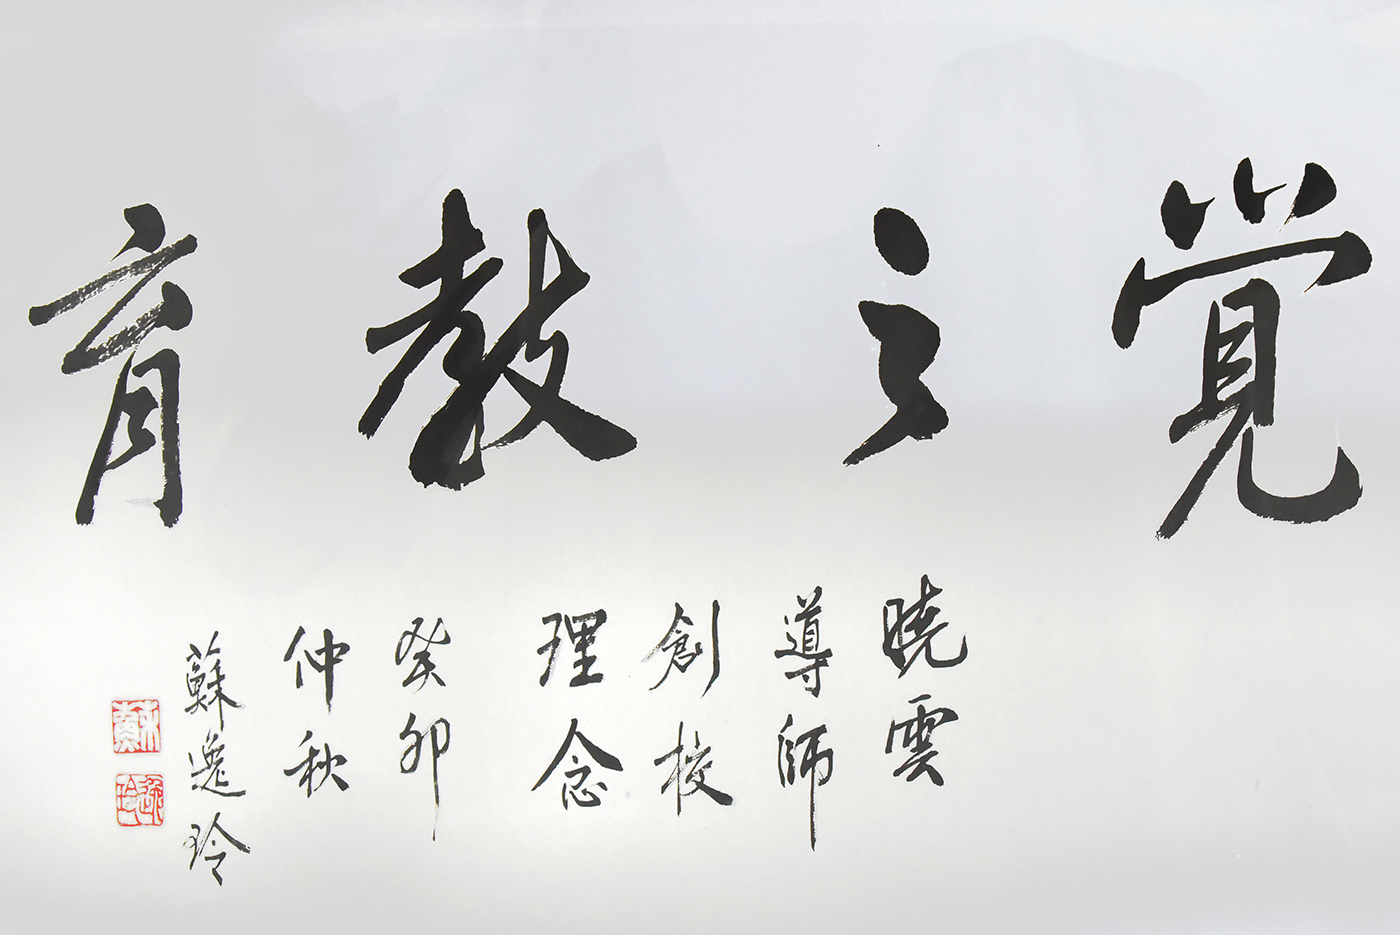 覚之教育
曉雲
導師
創校
理念
癸卯
仲秋
蘇逸玲